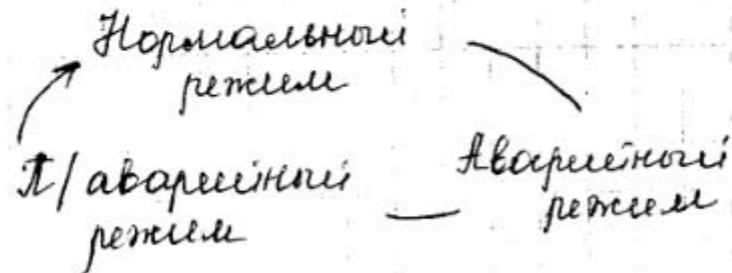 Нормальный
режим
П/аварийный
режим
Аварийный
режим